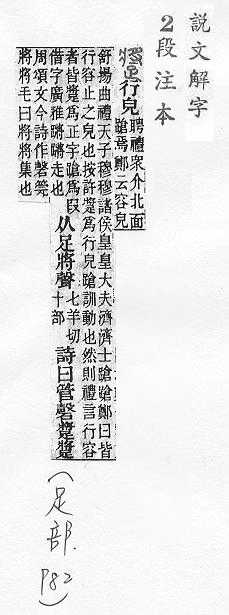 説文解字
2段注本
蹡行皃
聘禮衆介北面
蹌焉鄭云容皃
舒揚曲禮天子穆穆諸侯皇皇大夫濟濟士蹌蹌鄭曰皆
行容止之皃也按許蹡爲行皃蹌訓動也然則禮言行容
者皆蹡爲正字蹌爲叚
借字廣雅蹡蹡走也
从足將聲
七羊切
十部
詩曰管磬蹡蹡
周頌文今詩作磬筦
將將毛曰將將集也
(足部.P82)